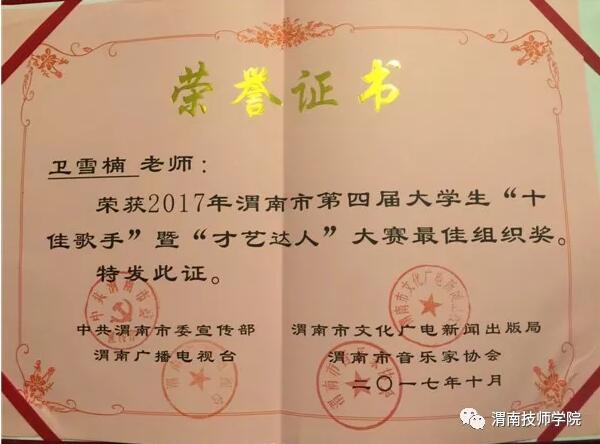 荣誉证书
卫雪楠 老师：
荣获2017年渭南市第四届大学生“十
佳歌手”暨“才艺达人”大赛最佳组织奖。
特发此证。
中共渭南市委宣传部 渭南市文化广电新闻出版局
渭南广播电视台 渭南市音乐家协会
二〇一七年十月
渭南技师学院